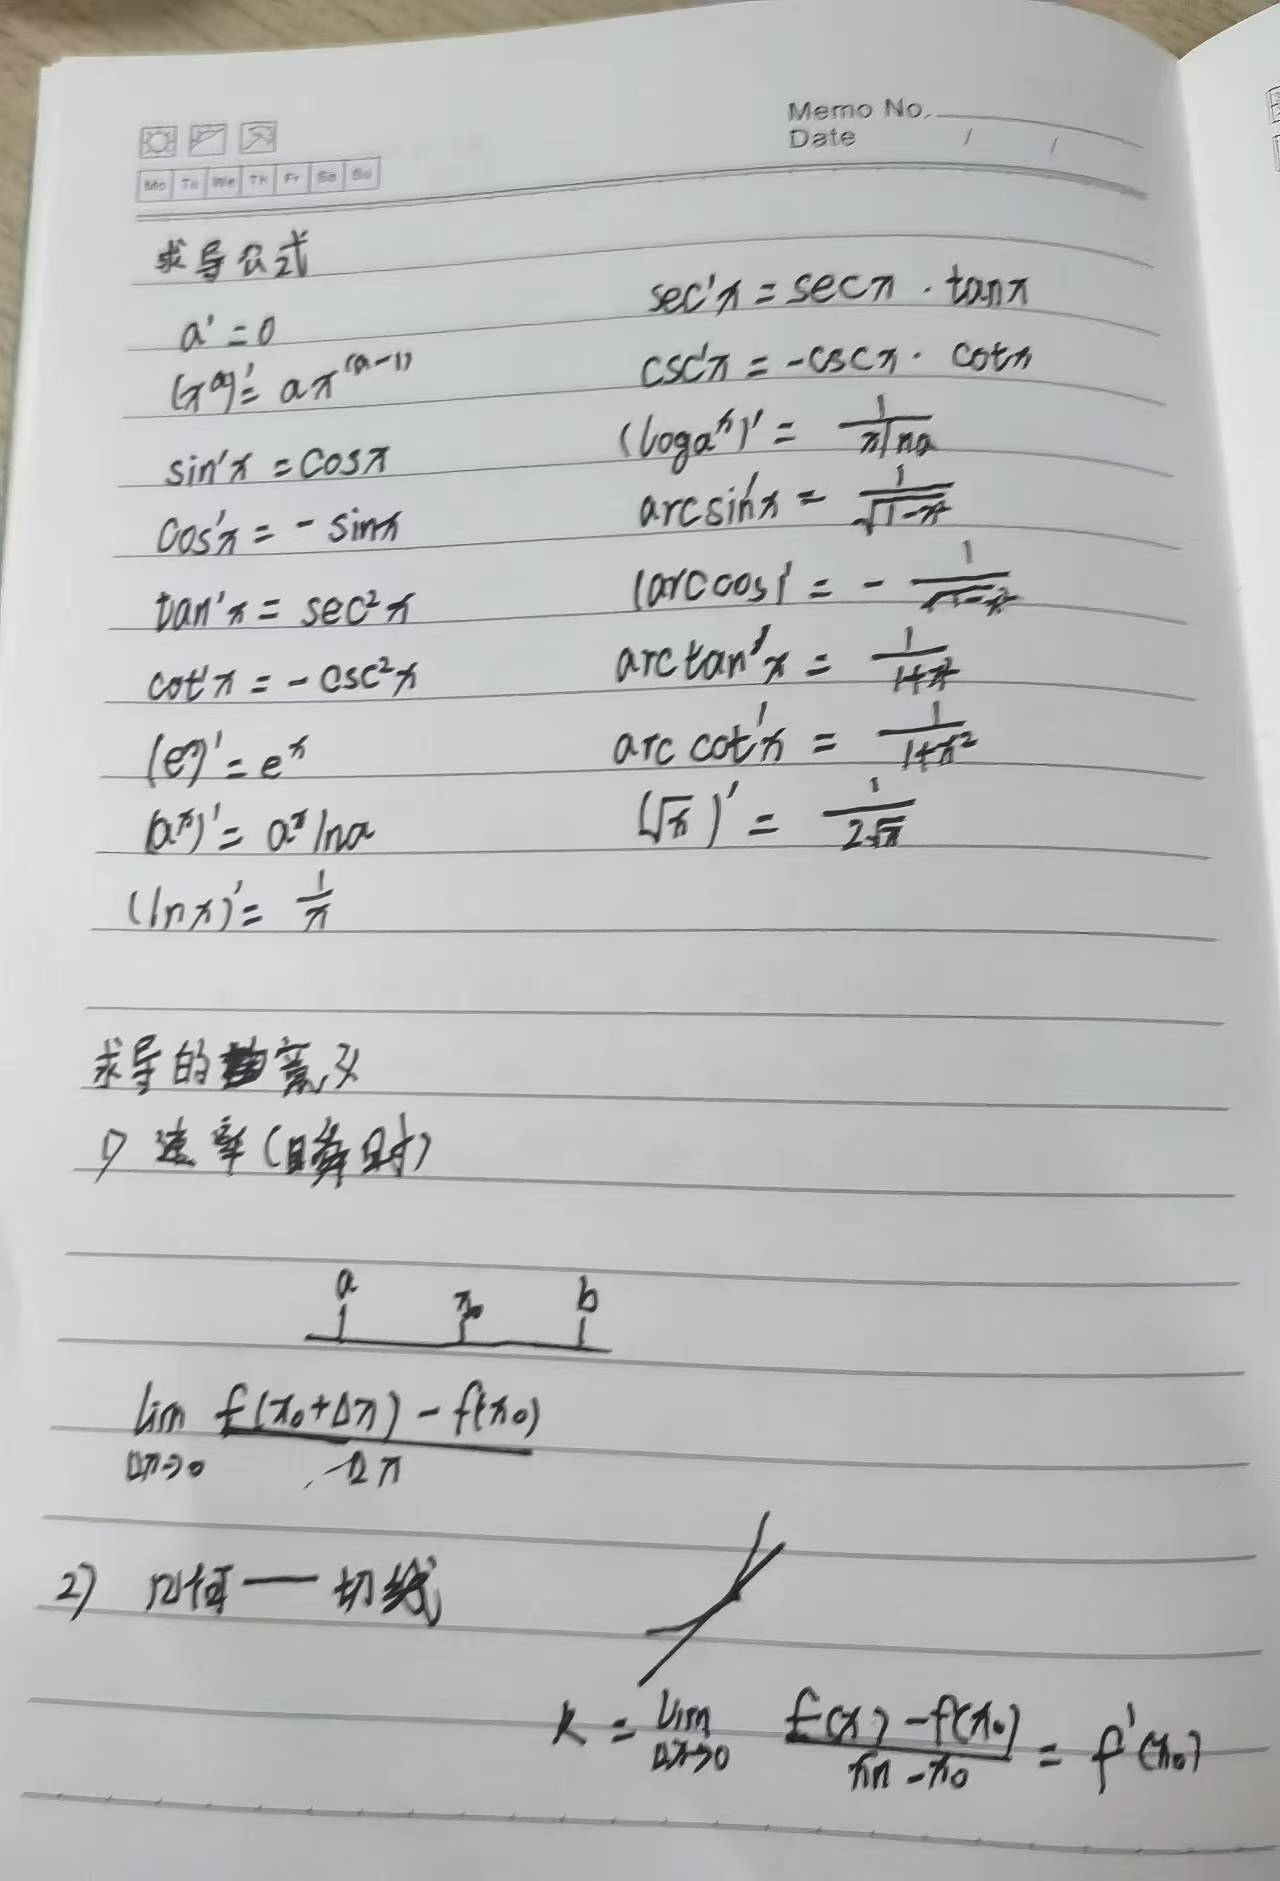 Memo No.
Date / /
Mo Tu We Th Fr Sa Su
求导公式
a' = 0
(x^a)' = ax^(a-1)
sin'x = cosx
cos'x = - sinx
tan'x = sec²x
cot'x = - csc²x
(e^x)' = e^x
(a^x)' = a^x lna
(lnx)' = 1/x
sec'x = secx · tanx
csc'x = -cscx · cotx
(loga^x)' = 1/xlna
arcsin'x = 1/√(1-x²)
(arccos)' = - 1/√(1-x²)
arctan'x = 1/(1+x²)
arccot'x = 1/(1+x²)
(√x)' = 1/(2√x)
求导的意义
1) 速率(瞬时)
a x₀ b
lim Δx→0 (f(x₀+Δx) - f(x₀))/Δx
2) 几何 — 切线
k = lim Δx→0 (f(x) - f(x₀))/(xn - x₀) = f'(x₀)